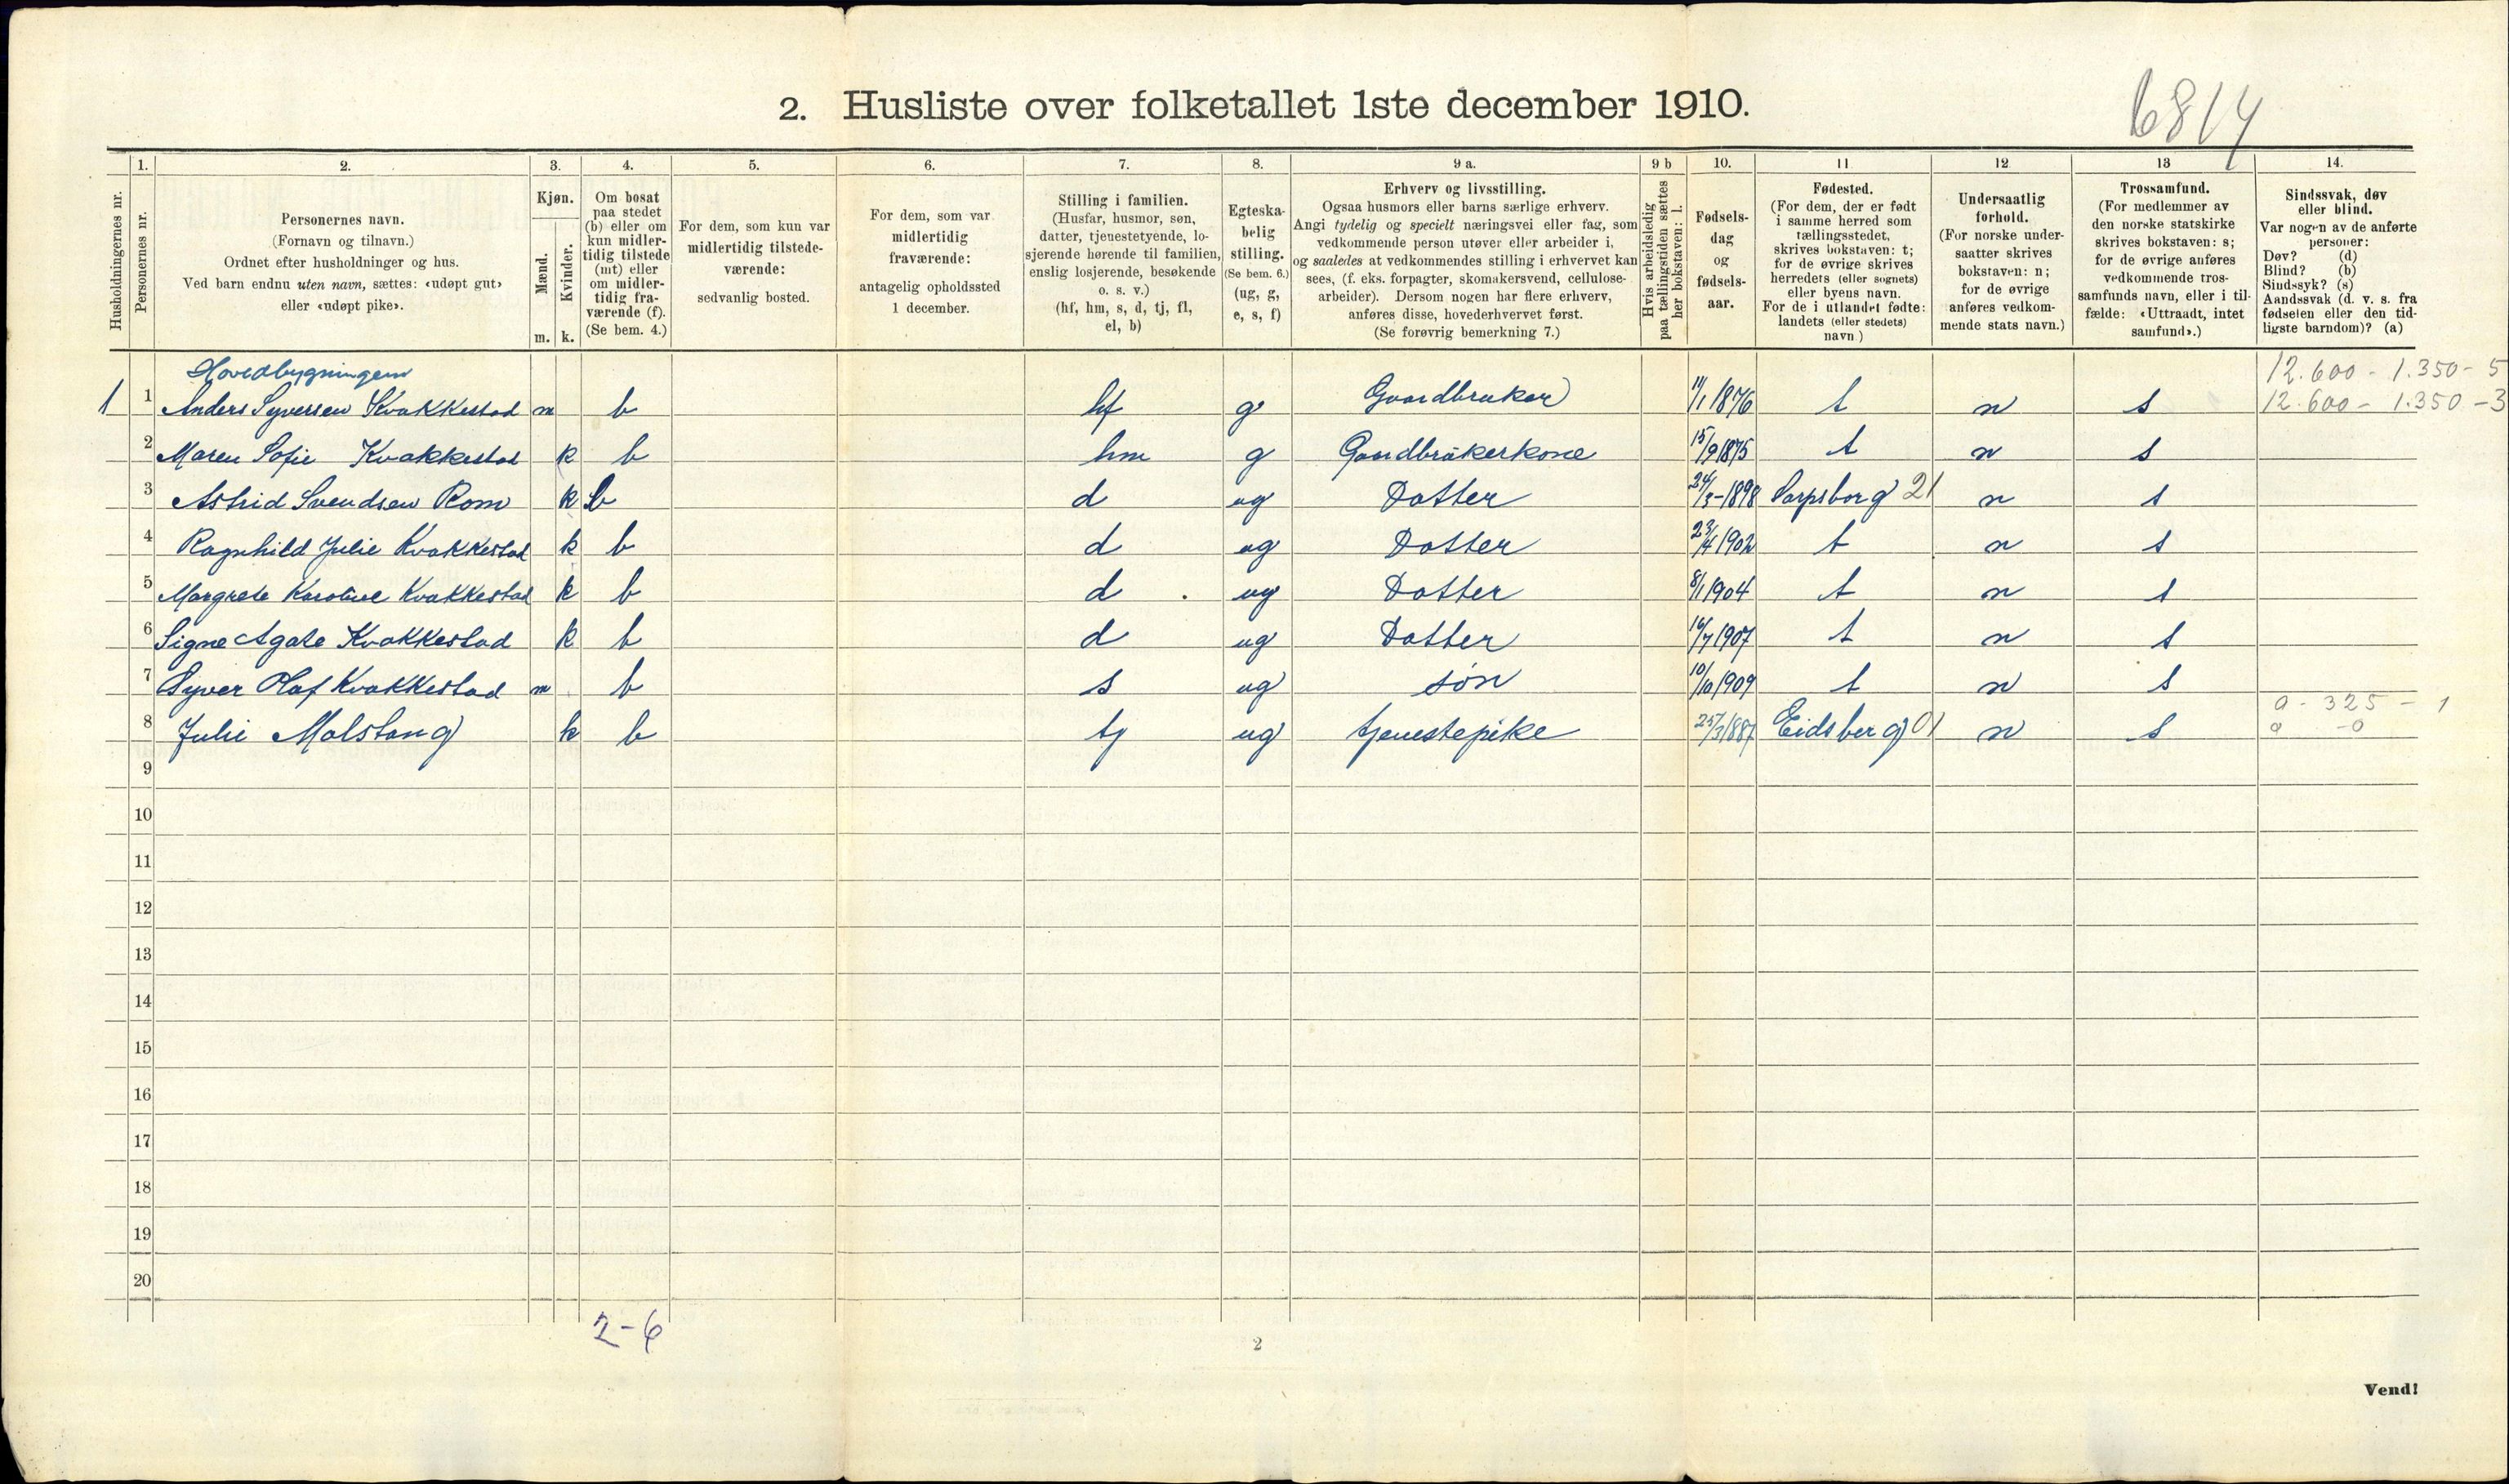 6814
2. Husliste over folketallet 1ste december 1910.
Husholdningernes nr.
1.
Personernes nr.
2.
Personernes navn.
(Fornavn og tilnavn.)
Ordnet efter husholdninger og hus.
Ved barn endnu uten navn, sættes: «udøpt gut»
eller «udøpt pike».
3.
Kjøn.
Mænd.
Kvinder.
m. k.
4.
Om bosat
paa stedet
(b) eller om
kun midler-
tidig tilstede
(mt) eller
om midler-
tidig fra-
værende (f).
(Se bem. 4.)
5.
For dem, som kun var
midlertidig tilstede-
værende:
sedvanlig bosted.
6.
For dem, som var
midlertidig
fraværende:
antagelig opholdssted
1 december.
7.
Stilling i familien.
(Husfar, husmor, søn,
datter, tjenestetyende, lo-
sjerende hørende til familien,
enslig losjerende, besøkende
o. s. v.)
(hf, hm, s, d, tj, fl,
el, b)
8.
Egteska-
belig
stilling.
(Se bem. 6.)
(ug, g,
e, s, f)
9 a.
Erhverv og livsstilling.
Ogsaa husmors eller barns særlige erhverv.
Angi tydelig og specielt næringsvei eller fag, som
vedkommende person utøver eller arbeider i,
og saaledes at vedkommendes stilling i erhvervet kan
sees, (f. eks. forpagter, skomakersvend, cellulose-
arbeider). Dersom nogen har flere erhverv,
anføres disse, hovederhvervet først.
(Se forøvrig bemerkning 7.)
9 b
Hvis arbeidsledig
paa tællingstiden sættes
her bokstaven: l.
10.
Fødsels-
dag
og
fødsels-
aar.
11
Fødested.
(For dem, der er født
i samme herred som
tællingsstedet,
skrives bokstaven: t;
for de øvrige skrives
herredets (eller sognets)
eller byens navn.
For de i utlandet fødte:
landets (eller stedets)
navn.)
12
Undersaatlig
forhold.
(For norske under-
saatter skrives
bokstaven: n;
for de øvrige
anføres vedkom-
mende stats navn.)
13
Trossamfund.
(For medlemmer av
den norske statskirke
skrives bokstaven: s;
for de øvrige anføres
vedkommende tros-
samfunds navn, eller i til-
fælde: «Uttraadt, intet
samfund».)
14.
Sindssvak, døv
eller blind.
Var nogen av de anførte
personer:
Døv? (d)
Blind? (b)
Sindssyk? (s)
Aandssvak (d. v. s. fra
fødselen eller den tid-
ligste barndom)? (a)
Hovedbygningen
12.600 - 1.350 - 5
1 1 Anders Syversen Kvakkestad m b hf g Gaardbruker 11/1 1876 t n s 12.600 - 1.350 - 3
2 Maren Sofie Kvakkestad k b hm g Gaardbrukerkone 15/9 1875 t n s
3 Astrid Svendsen Rom k b d ug Datter 24/3-1898 Sarpsborg 21 n s
4 Ragnhild Julie Kvakkestad k b d ug Datter 23/4 1902 t n s
5 Margrete Karoline Kvakkestad k b d ug Datter 8/1 1904 t n s
6 Signe Agate Kvakkestad k b d ug Datter 16/7 1907 t n s
7 Syver Olaf Kvakkestad m b s ug søn 10/10 1909 t n s
0 - 325 - 1
8 Julie Molstang k b tj ug tjenestepike 25/3 1887 Eidsberg 01 n s 0 - 0
9
10
11
12
13
14
15
16
17
18
19
20
2-6
2
Vend!